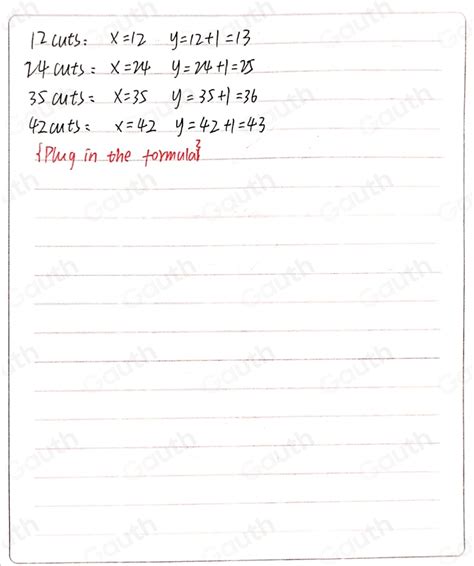 12 cuts: x=12 y=12+1=13
24 cuts: x=24 y=24+1=25
35 cuts: x=35 y=35+1=36
42 cuts: x=42 y=42+1=43
{Plug in the formula}
Gauth